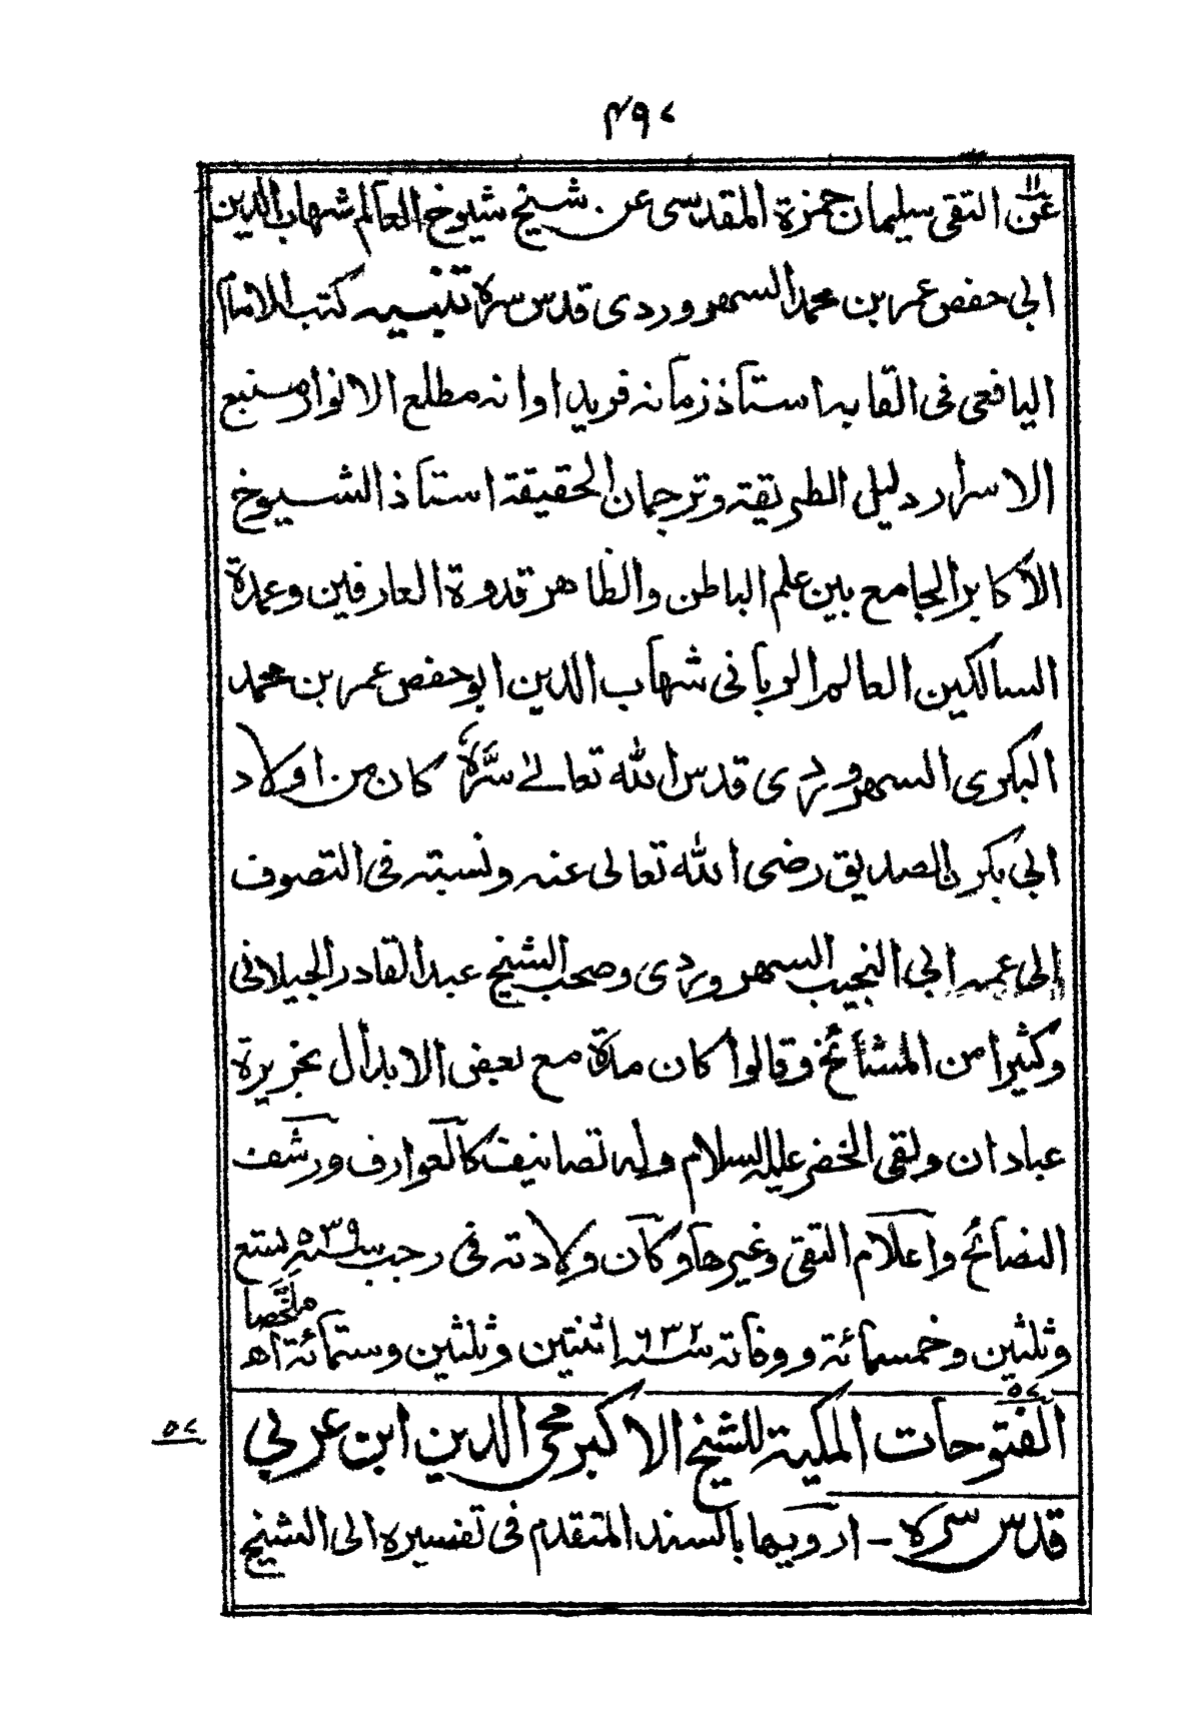 عن التقی سلیمان حمزة المقدسی عن شیخ شیوخ العالم شهاب الدین
ابی حفص عمر بن محمد السهروردی قدس سره تنبیه کتب الامام
الیافعی فی القابه استاذ زمانه فرید اوانه مطلع الانوار منبع
الاسرار دلیل الطریقة وترجمان الحقیقة استاذ الشیوخ
الاکابر الجامع بین علم الباطن والظاهر قدوة العارفین وعمدة
السالکین العالم الربانی شهاب الدین ابو حفص عمر بن محمد
البکری السهروردی قدس الله تعالی سره کان من اولاد
ابی بکر ن الصدیق رضی الله تعالی عنه ونسبته فی التصوف
الی عمه ابی النجیب السهروردی وصحب الشیخ عبد القادر الجیلانی
وکثیرا من المشائخ وقالوا کان مدة مع بعض الابدال بجزیرة
عبادان ولقی الخضر علیه السلام وله تصانیف کالعوارف ورشف
النصائح واعلام التقی وغیرها وکان ولادته فی رجب سنه ۵۳۹ تسع
وثلثین وخمسمائة ووفاته سنه ۶۳۲ اثنتین وثلثین وستمائة اھ ملخصا
الفتوحات المکیة للشیخ الاکبر محی الدین ابن عربی
قدس سره - ارویها بالسند المتقدم فی تفسیره الی الشیخ